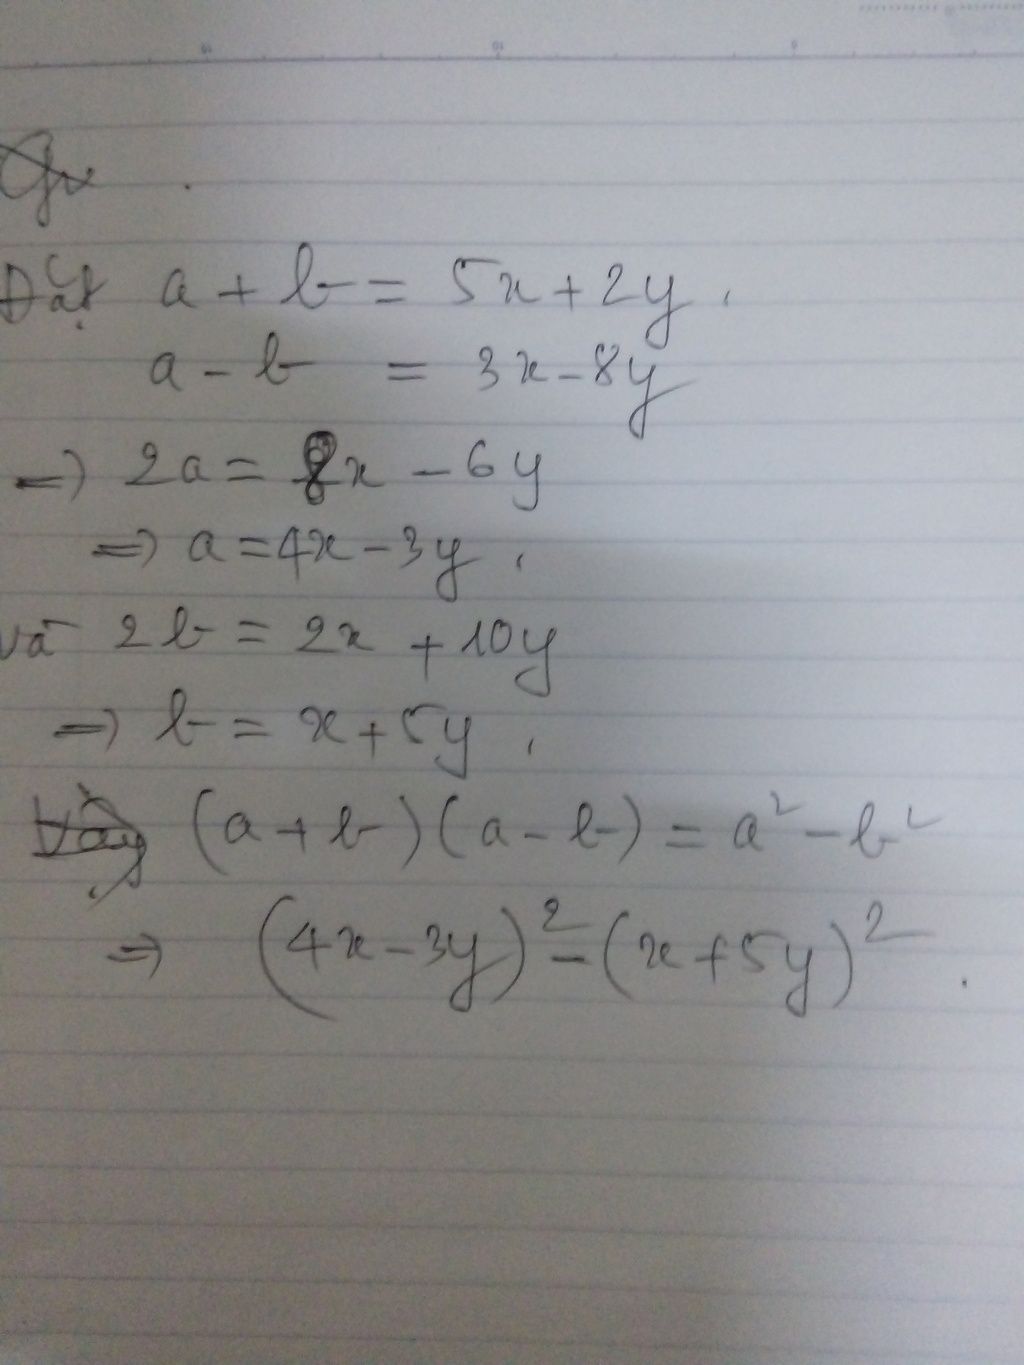 Đặt a + b = 5x + 2y.
a - b = 3x - 8y
=> 2a = 8x - 6y
=> a = 4x - 3y.
và 2b = 2x + 10y
=> b = x + 5y.
(a + b)(a - b) = a² - b²
=> (4x - 3y)² - (x + 5y)².